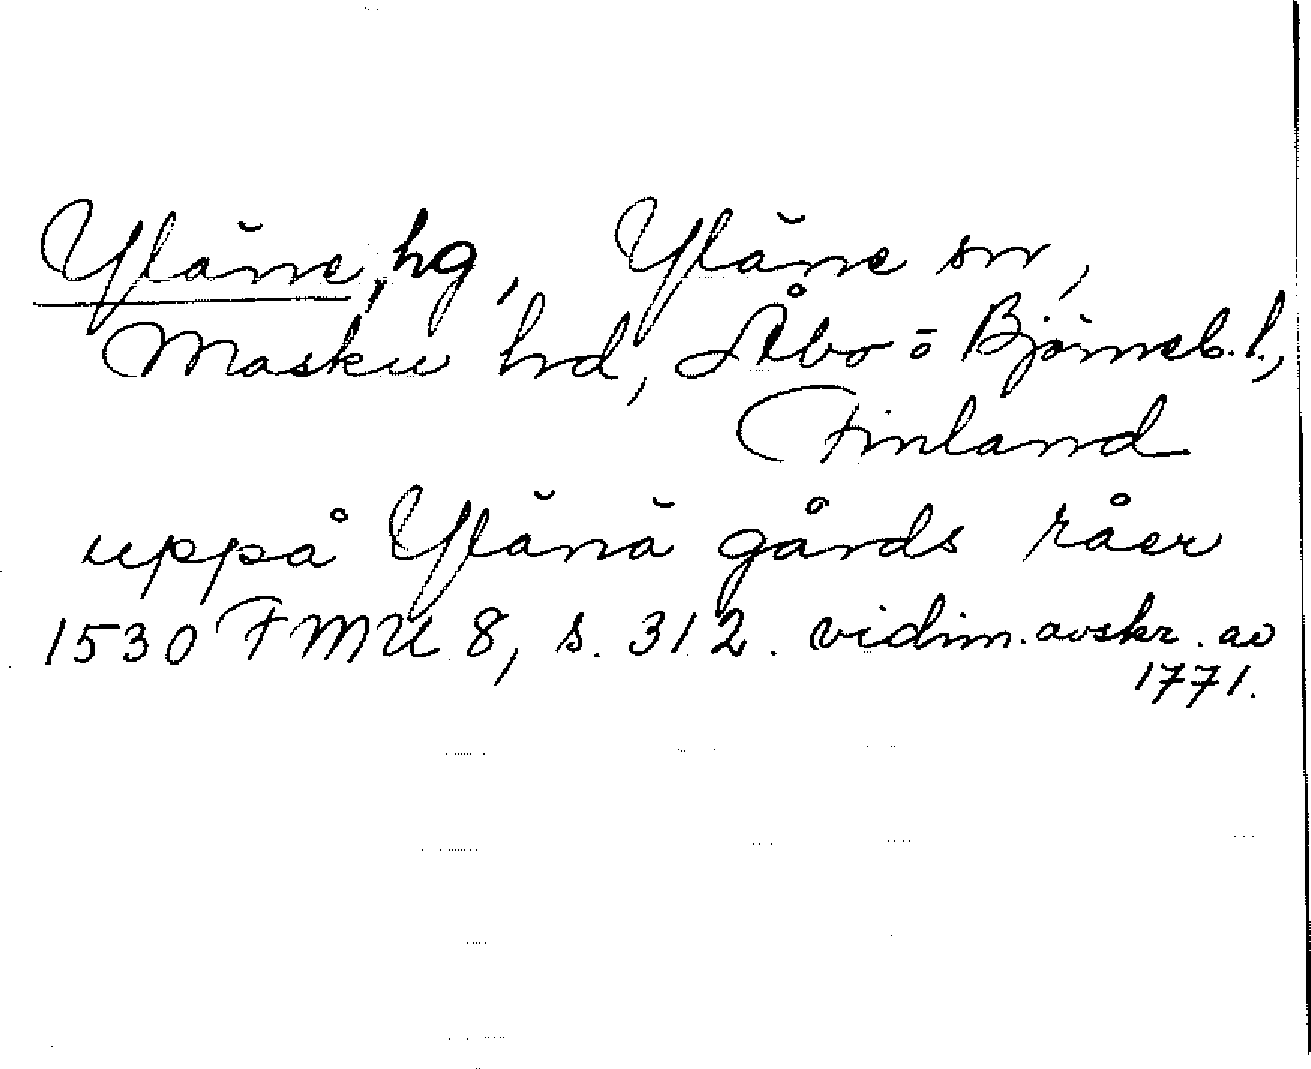 Yläne, hg, Yläne sn,
Masku hd, Åbo o Björneb. l.,
Finland
uppå Ylänä gårds råer
1530 FMU 8, s. 312. vidim. avskr. av
1771.